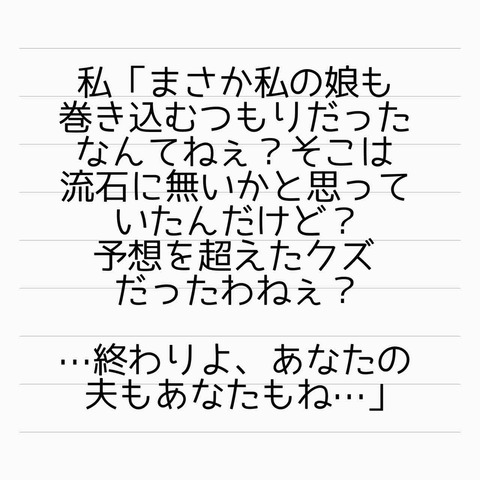 私「まさか私の娘も
巻き込むつもりだった
なんてねぇ？そこは
流石に無いかと思って
いたんだけど？
予想を超えたクズ
だったわねぇ？
…終わりよ、あなたの
夫もあなたもね…」